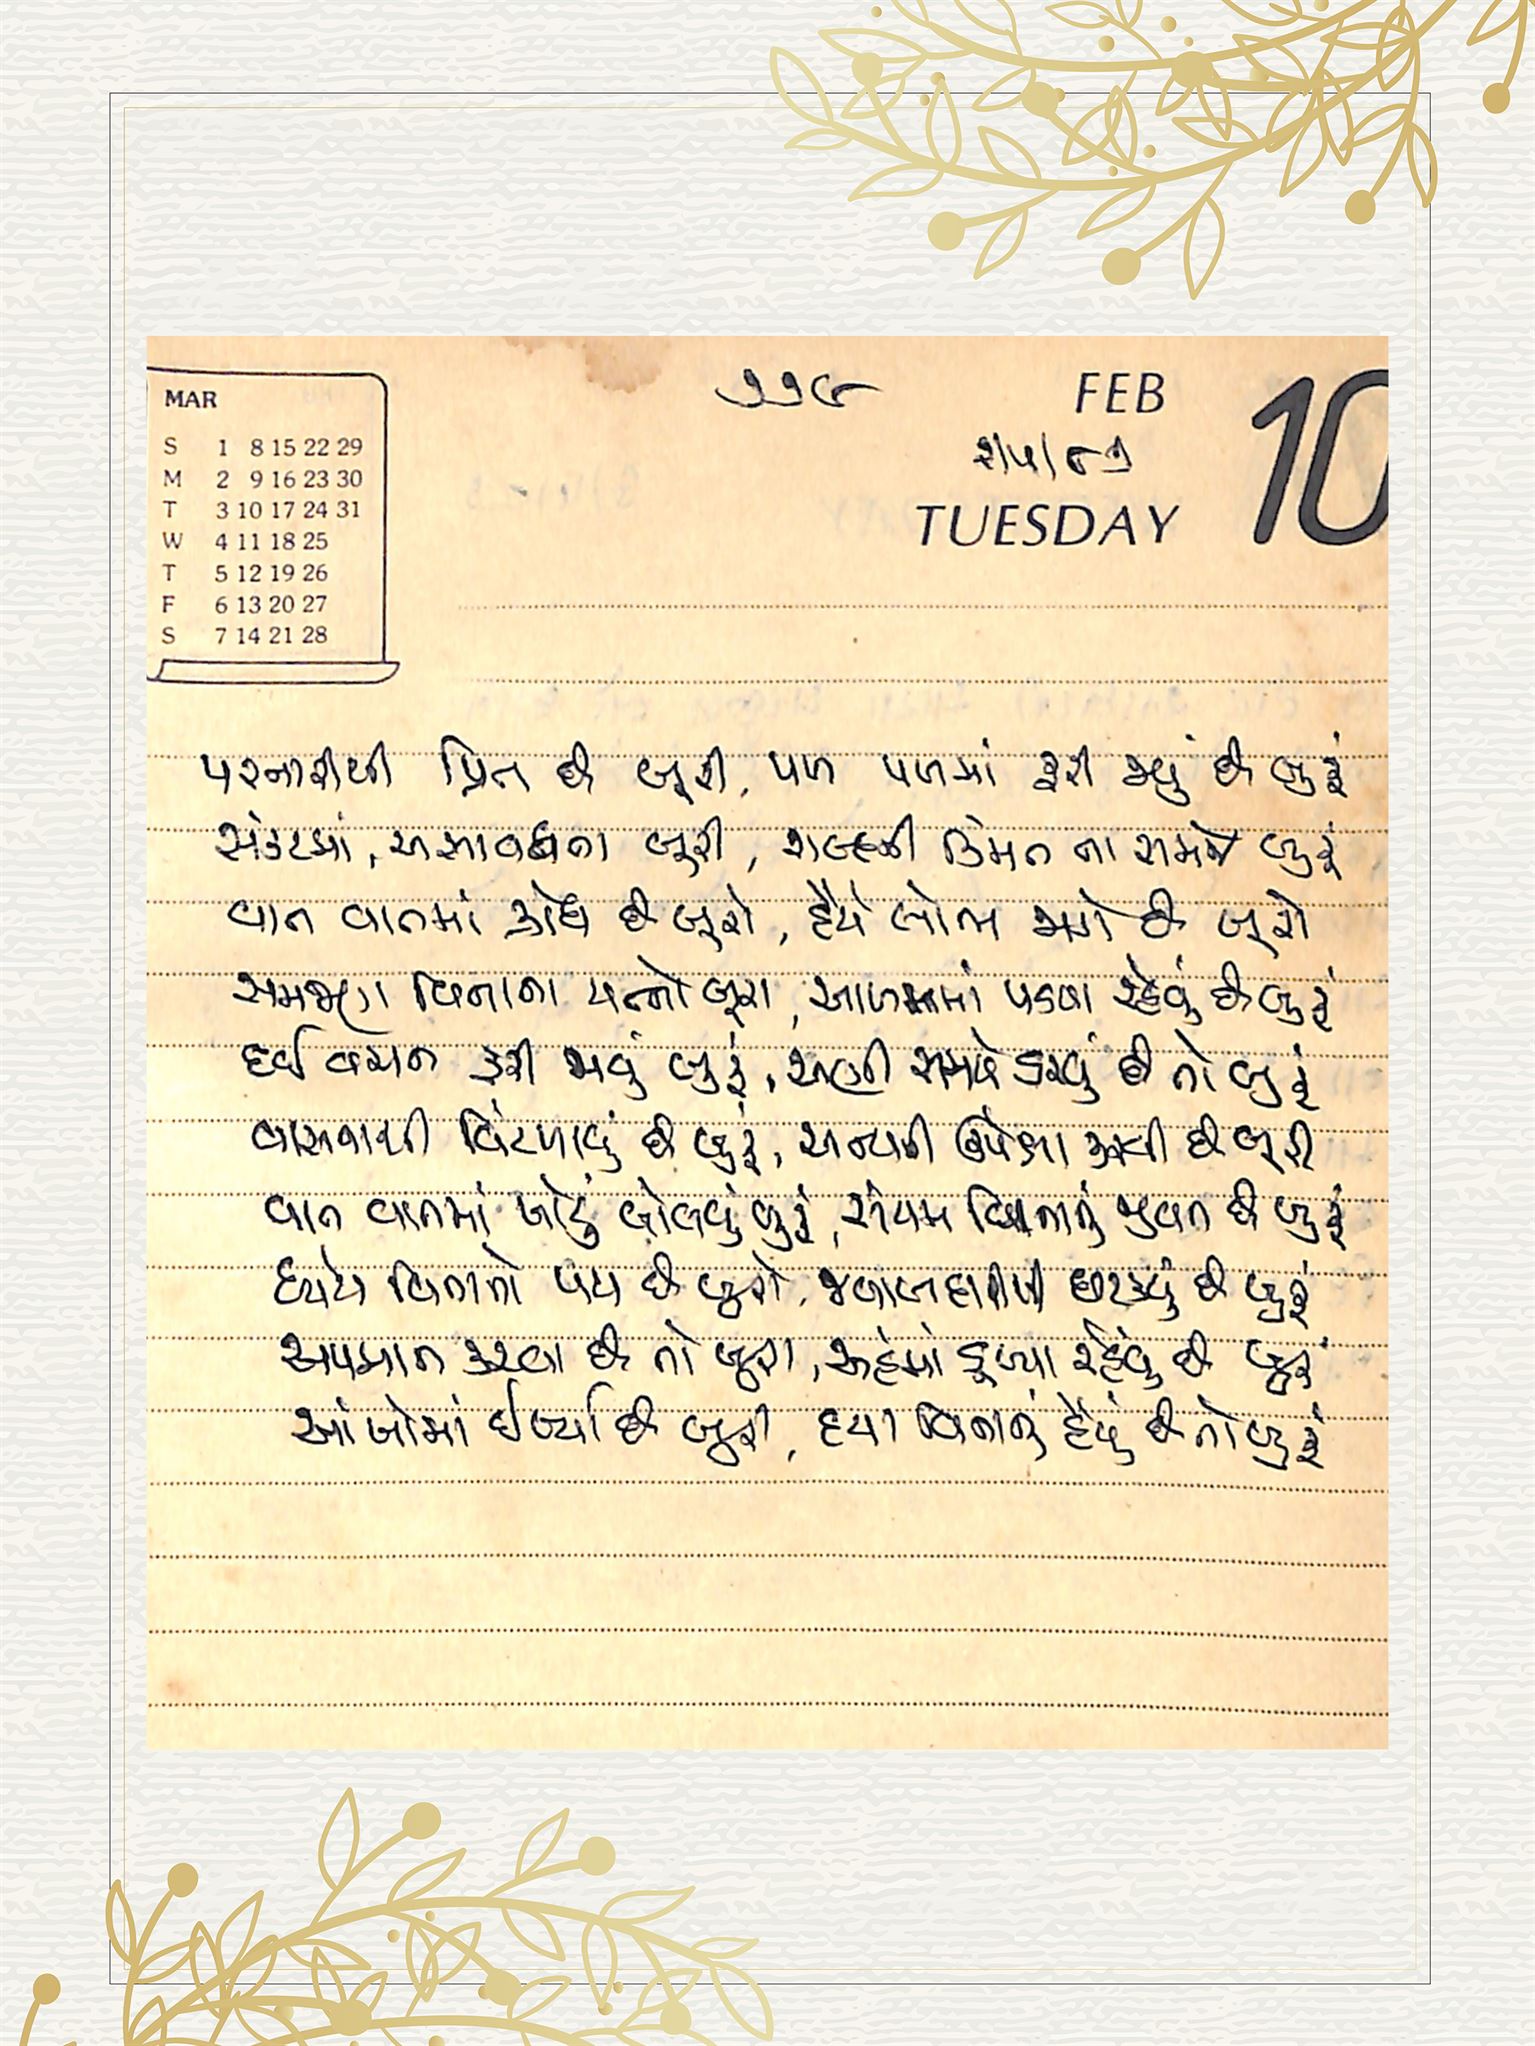 MAR
S 1 8 15 22 29
M 2 9 16 23 30
T 3 10 17 24 31
W 4 11 18 25
T 5 12 19 26
F 6 13 20 27
S 7 14 21 28
૧૧૯
FEB 10
૨/૫/૮૧
TUESDAY
પરનારીથી પ્રિત છે બૂરી, પળ પળમાં ફરી જવું છે બુરૂં
સંકટમાં, અસાવધતા બૂરી, શબ્દની કિંમત ના સમજે બુરૂં
વાત વાતમાં ક્રોધ છે બૂરો, હૈયે લોભ જાગે છે બૂરો
સમજણ વિનાના યત્નો બૂરા, આળસમાં પડયા રહેવું છે બુરૂં
દઈ વચન ફરી જવું બુરૂં, અણી સમયે ડરવું છે તો બુરૂં
વાસનાથી વિંટળાવું છે બુરૂં, અન્યની ઉપેક્ષા કરવી છે બૂરી
વાત વાતમાં ખોટું બોલવું બુરૂં, સંયમ વિનાનું જીવન છે બુરૂં
ધ્યેય વિનાનો પથ છે બુરો, જવાબદારીથી છટકવું છે બુરૂં
અપમાન કરવા છે તો બુરા, અહંમાં ડૂબ્યા રહેવું છે બુરૂં
આંખોમાં ઈર્ષ્યા છે બુરી, દયા વિનાનું હૈયું છે તો બુરૂં